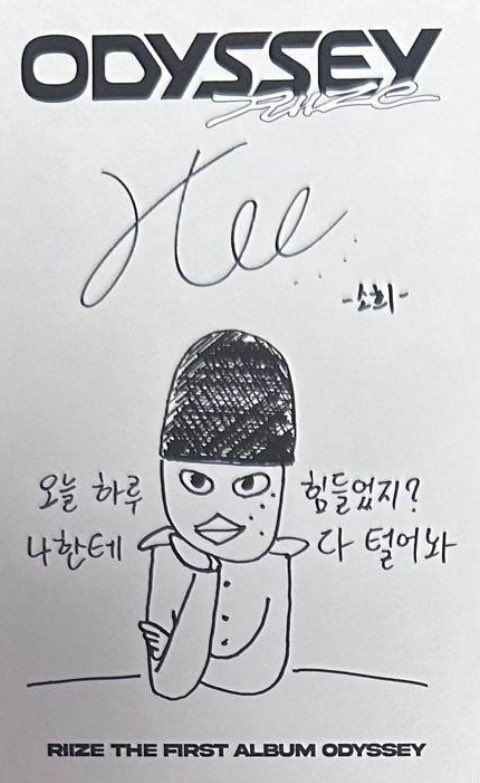 ODYSSEY
RIIZE
Hee
-소희-
오늘 하루 힘들었지?
나한테 다 털어놔
RIIZE THE FIRST ALBUM ODYSSEY